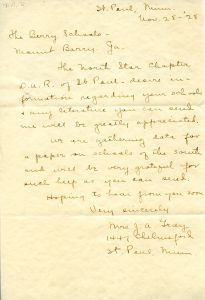 St. Paul, Minn.
Nov. 28-'28
The Berry Schools -
Mount Berry, Ga.
The North Star Chapter
D.A.R. of St Paul - desire in-
formation regarding your schools
& any literature you can send
me will be greatly appreciated.
We are gathering data for
a paper on schools of the south
and will be very grateful for
such help as you can send.
Hoping to hear from you soon
Very sincerely
Mrs J. A.
1449 Chelmsford
St. Paul, Minn